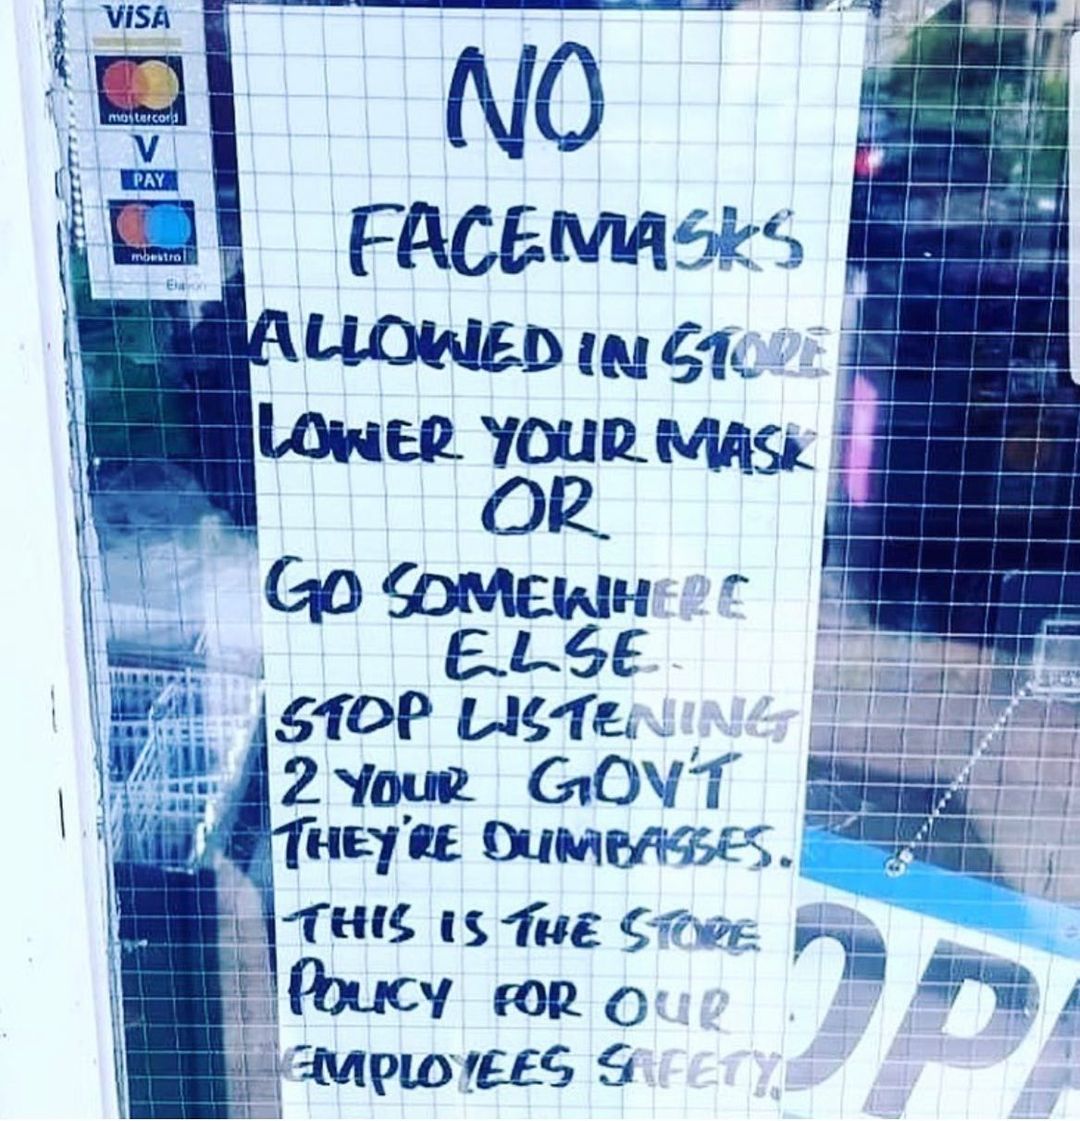 VISA
mastercard
V
PAY
maestro
NO
FACEMASKS
ALLOWED IN STORE
LOWER YOUR MASK
OR
GO SOMEWHERE
ELSE
STOP LISTENING
2 YOUR GOV'T
THEY'RE DUMBASSES.
THIS IS THE STORE
POLICY FOR OUR
EMPLOYEES SAFETY.